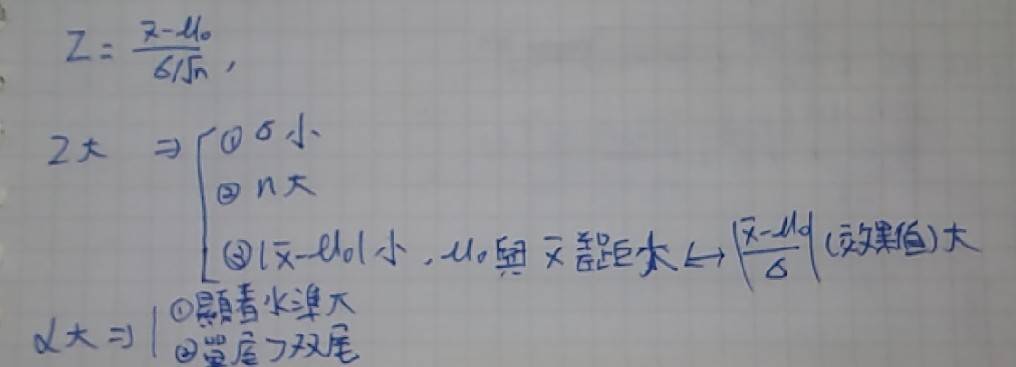 Z = (x̄-μ₀)/(σ/√n) ,
Z大 ⇒ ① σ小
② n大
③ |x̄-μ₀| 小 , μ₀與 x̄ 差距大 ↔ |(x̄-μ₀)/σ| (效果值)大
α大 ⇒ ①顯著水準大
②單尾>双尾